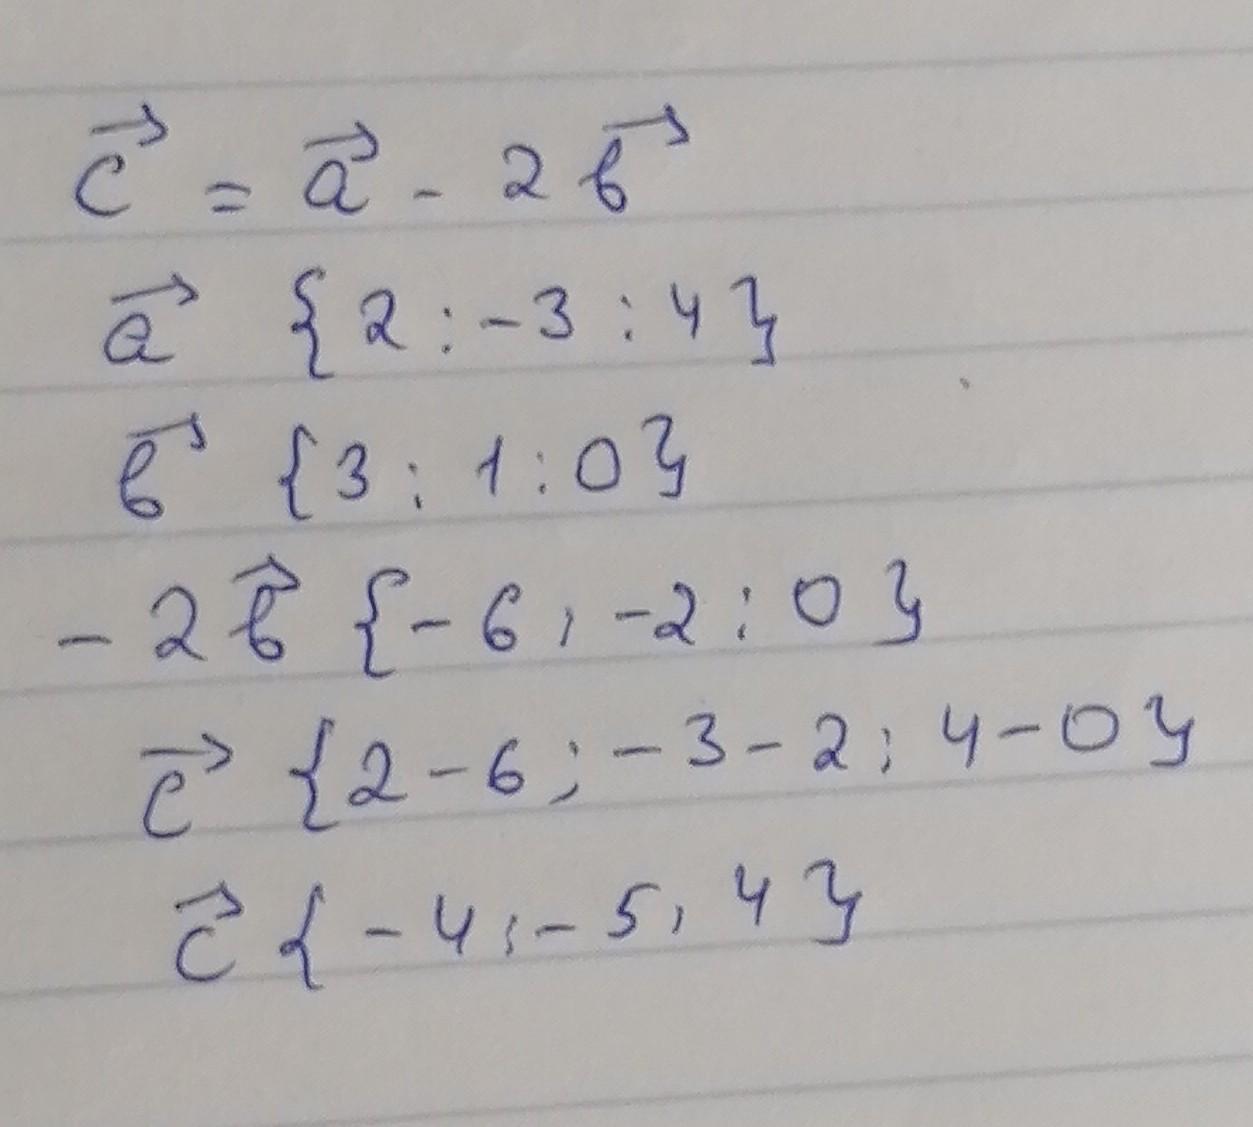 c⃗ = a⃗ - 2b⃗
a⃗ {2 : -3 : 4}
b⃗ {3 ; 1 : 0}
- 2b⃗ {- 6 ; -2 ; 0}
c⃗ {2 - 6 ; - 3 - 2 ; 4 - 0}
c⃗ { - 4 ; - 5 , 4 }